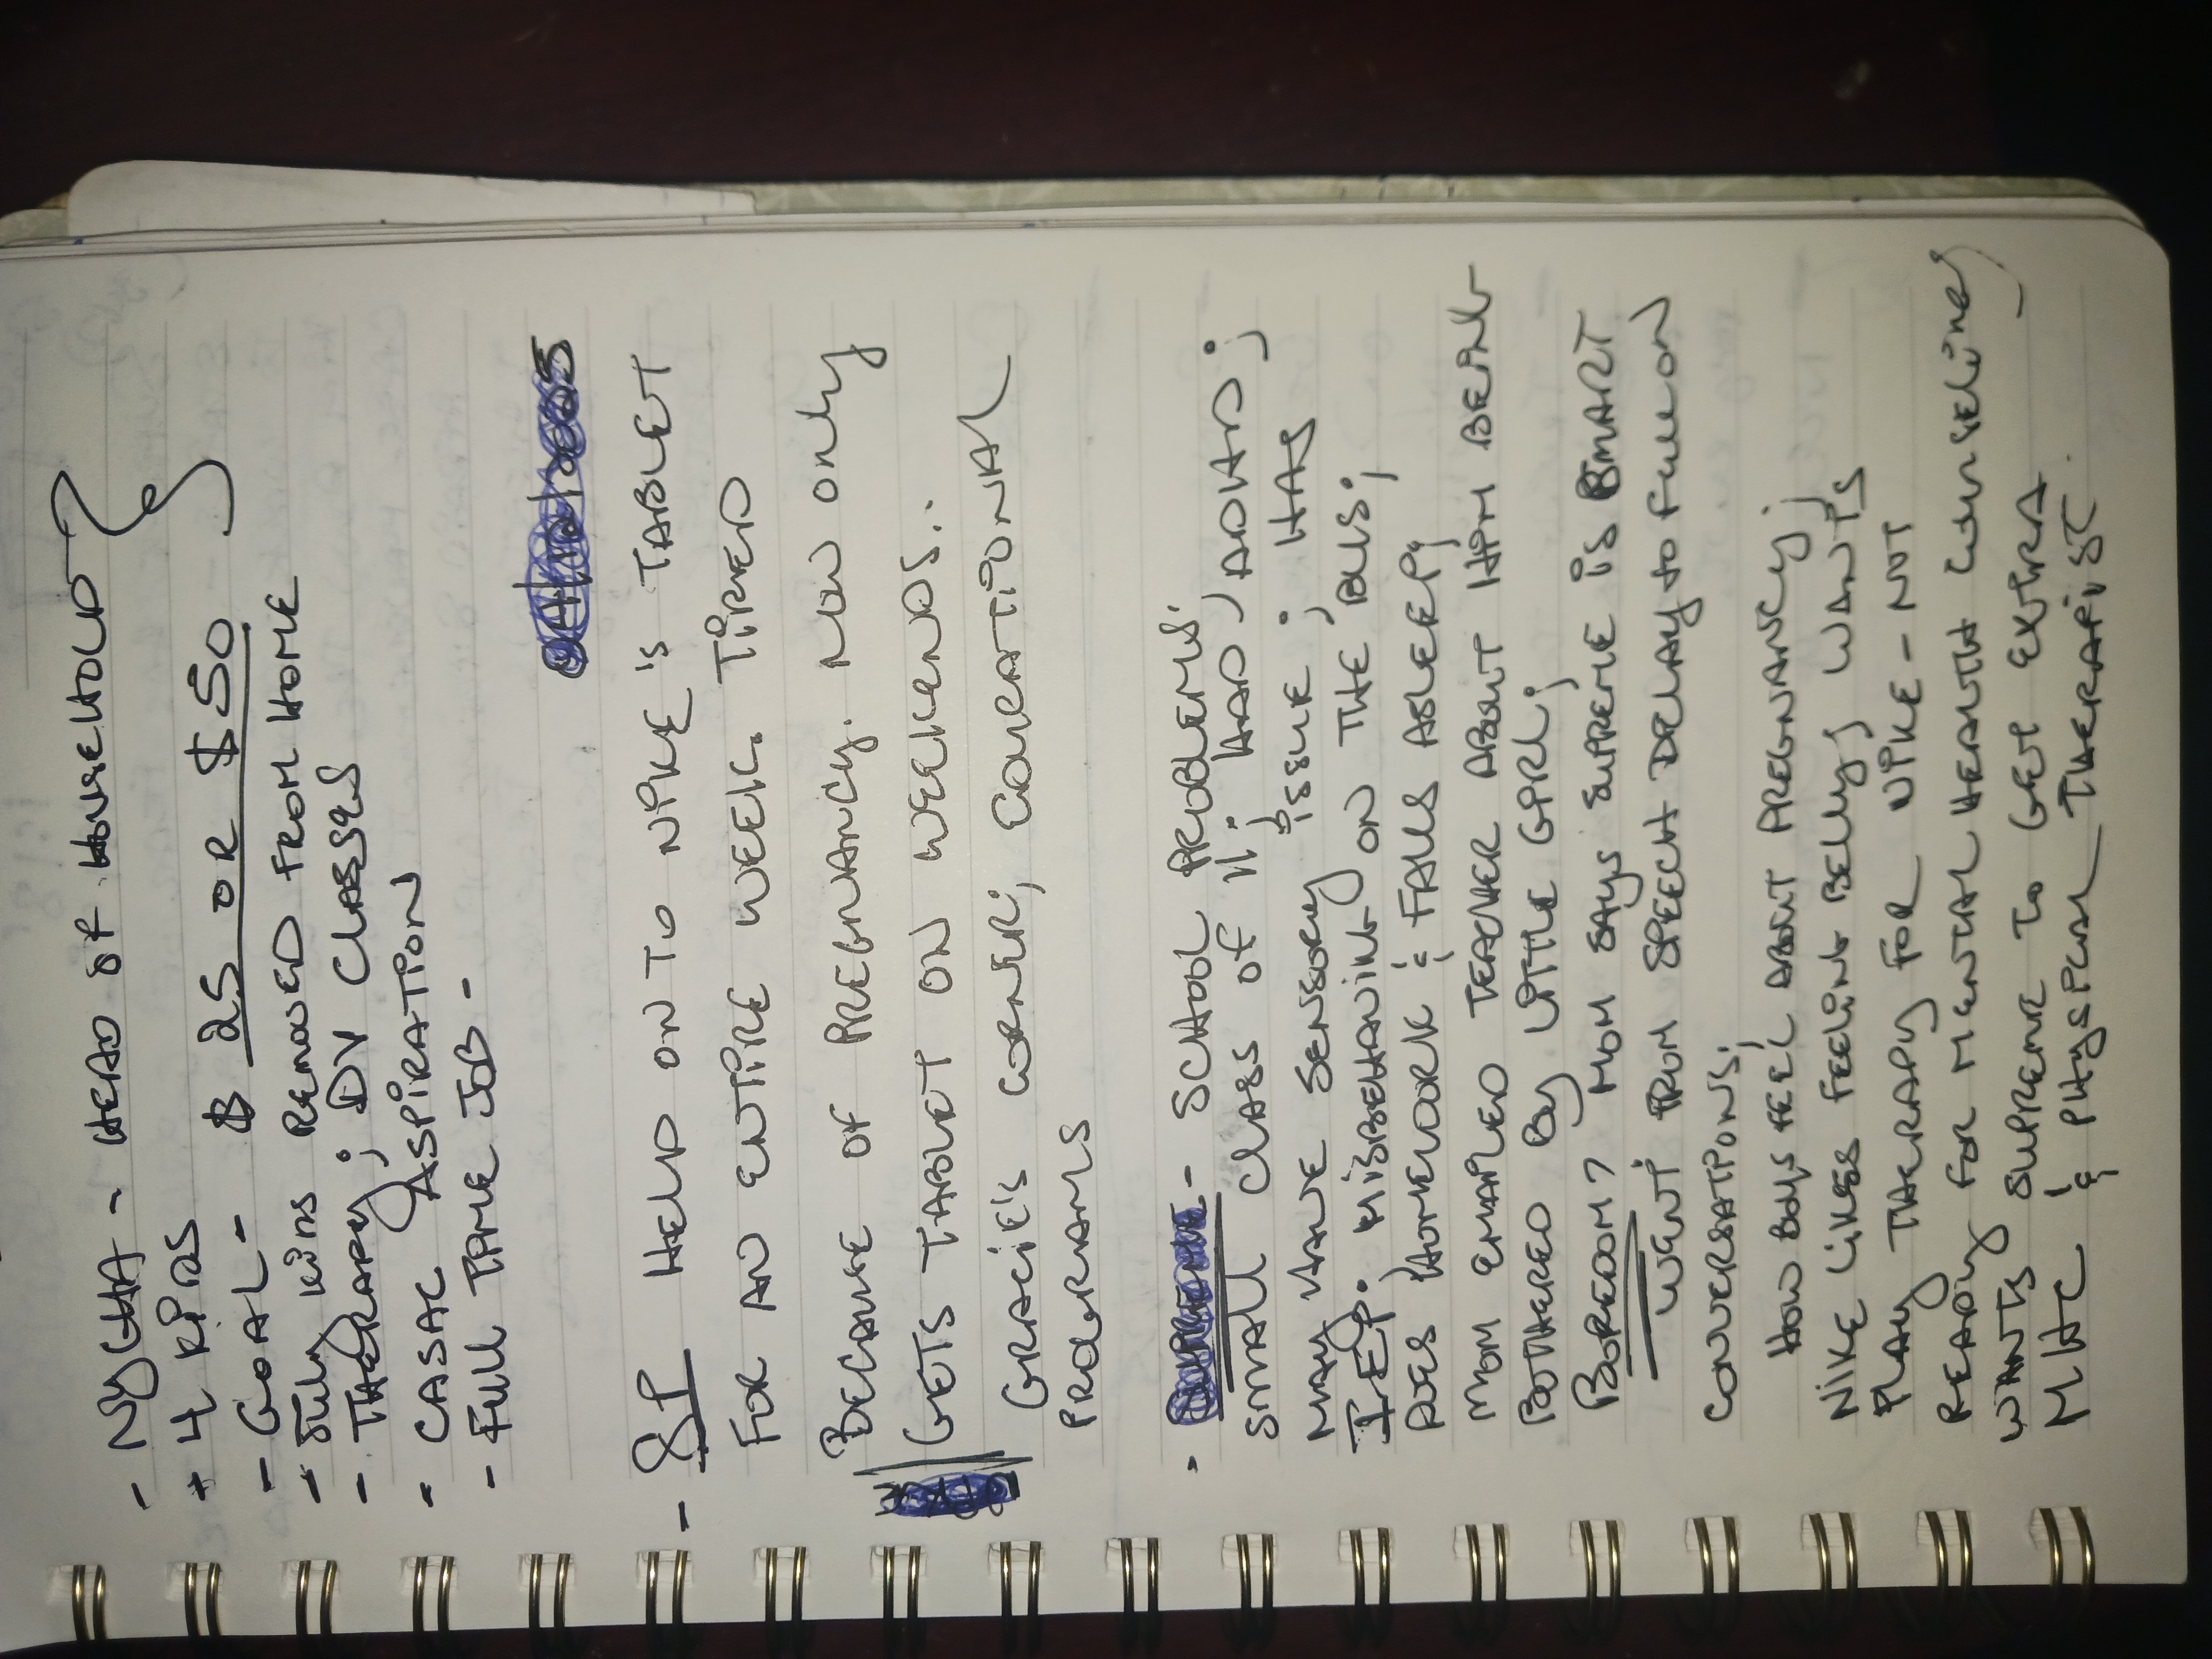 - NYCHA - HEAD OF HOUSEHOLD
+ 4 KIDS
- GOAL - $ 25 OR $50
- July KIDS REMOVED FROM HOME
- THERAPY; DV CLASSES
- CASAC ASPIRATION
- FULL TIME JOB -
- HELD ON TO NIKE'S TABLET
FOR AN ENTIRE WEEK. TIRED
BECAUSE OF PREGNANCY. NOW ONLY
GETS TABLET ON WEEKENDS..
GRACIE'S CORNER; EDUCATIONAL
PROGRAMS
- SCHOOL PROBLEMS.
SMALL CLASS OF 11. ADHD;
MAY HAVE SENSORY ISSUE; HAS
IEP. MISBEHAVING ON THE BUS;
DOES HOMEWORK & FALLS ASLEEP;
MOM EMAILED TEACHER ABOUT HIM BEING
BOTHERED BY LITTLE GIRL;
BOREDOM? MOM SAYS SUPREME IS SMART
WENT FROM SPEECH DELAY to FULL ON
CONVERSATIONS;
HOW BOYS FEEL ABOUT PREGNANCY;
NIKE LIKES FEELING BELLY; WANTS
PLAY THERAPY FOR NIKE - NOT
READY FOR MENTAL HEALTH COUNSELING
WANTS SUPREME TO GET EXTRA
MHC & PHYSICAL THERAPIST.